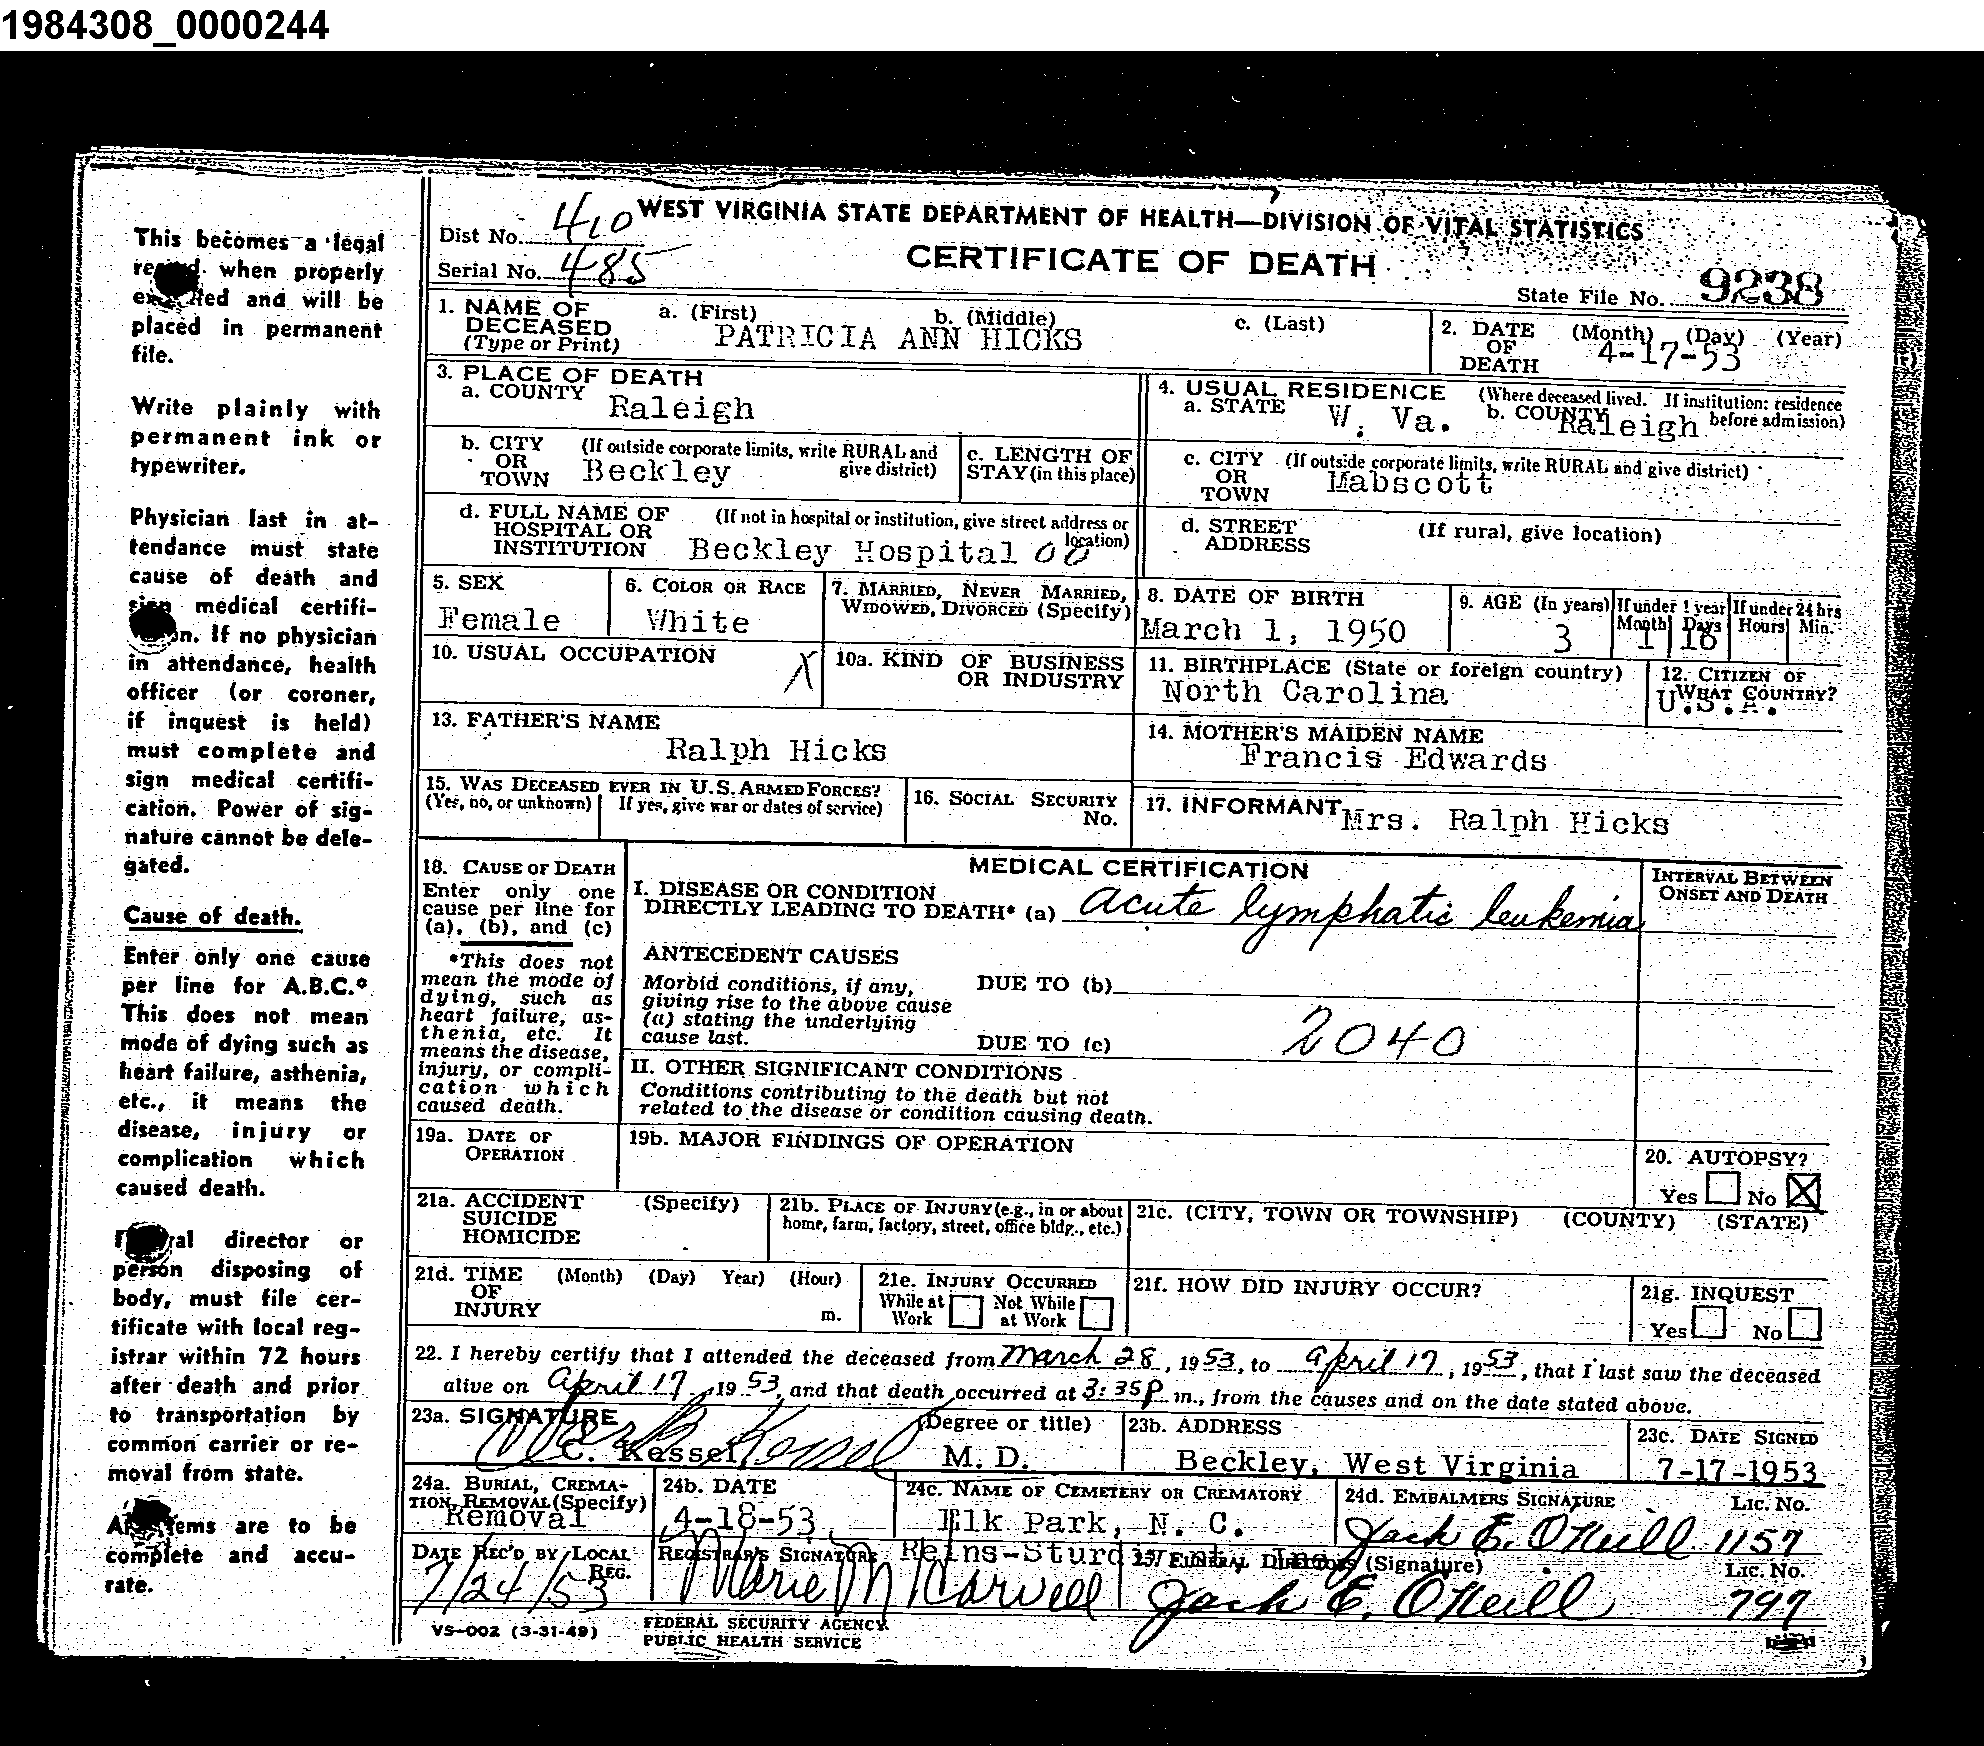 1984308_0000244
WEST VIRGINIA STATE DEPARTMENT OF HEALTH—DIVISION OF VITAL STATISTICS
CERTIFICATE OF DEATH
Dist No. 410
Serial No. 485
State File No. 9238
This becomes a legal
when properly
and will be
placed in permanent
file.
Write plainly with
permanent ink or
typewriter.
Physician last in at-
tendance must state
cause of death and
sign medical certifi-
If no physician
in attendance, health
officer (or coroner,
if inquest is held)
must complete and
sign medical certifi-
cation. Power of sig-
nature cannot be dele-
gated.
Cause of death.
Enter only one cause
per line for A.B.C.*
This does not mean
mode of dying such as
heart failure, asthenia,
etc., it means the
disease, injury or
complication which
caused death.
director or
person disposing of
body, must file cer-
tificate with local reg-
istrar within 72 hours
after death and prior
to transportation by
common carrier or re-
moval from state.
are to be
complete and accu-
rate.
1. NAME OF DECEASED (Type or Print)
a. (First) b. (Middle) c. (Last)
PATRICIA ANN HICKS
2. DATE OF DEATH (Month) (Day) (Year)
4-17-53
3. PLACE OF DEATH
a. COUNTY Raleigh
4. USUAL RESIDENCE (Where deceased lived. If institution: residence before admission)
a. STATE W. Va. b. COUNTY Raleigh
b. CITY OR TOWN (If outside corporate limits, write RURAL and give district)
Beckley
c. LENGTH OF STAY (in this place)
c. CITY OR TOWN (If outside corporate limits, write RURAL and give district)
Mabscott
d. FULL NAME OF HOSPITAL OR INSTITUTION (If not in hospital or institution, give street address or location)
Beckley Hospital 00
d. STREET ADDRESS (If rural, give location)
5. SEX
Female
6. COLOR OR RACE
White
7. MARRIED, NEVER MARRIED, WIDOWED, DIVORCED (Specify)
8. DATE OF BIRTH
March 1, 1950
9. AGE (In years) If under 1 year Month Days If under 24 hrs Hours Min.
3 1 16
10. USUAL OCCUPATION X
10a. KIND OF BUSINESS OR INDUSTRY
11. BIRTHPLACE (State or foreign country)
North Carolina
12. CITIZEN OF WHAT COUNTRY?
U.S.A.
13. FATHER'S NAME
Ralph Hicks
14. MOTHER'S MAIDEN NAME
Francis Edwards
15. WAS DECEASED EVER IN U.S. ARMED FORCES?
(Yes, no, or unknown) If yes, give war or dates of service)
16. SOCIAL SECURITY No.
17. INFORMANT Mrs. Ralph Hicks
18. CAUSE OF DEATH
Enter only one
cause per line for
(a), (b), and (c)
*This does not
mean the mode of
dying, such as
heart failure, as-
thenia, etc. It
means the disease,
injury, or compli-
cation which
caused death.
MEDICAL CERTIFICATION
INTERVAL BETWEEN ONSET AND DEATH
I. DISEASE OR CONDITION
DIRECTLY LEADING TO DEATH* (a) Acute lymphatic leukemia
ANTECEDENT CAUSES
Morbid conditions, if any,
giving rise to the above cause
(a) stating the underlying
cause last.
DUE TO (b)
DUE TO (c)
2040
II. OTHER SIGNIFICANT CONDITIONS
Conditions contributing to the death but not
related to the disease or condition causing death.
19a. DATE OF OPERATION
19b. MAJOR FINDINGS OF OPERATION
20. AUTOPSY?
Yes No X
21a. ACCIDENT SUICIDE HOMICIDE (Specify)
21b. PLACE OF INJURY (e.g., in or about home, farm, factory, street, office bldg., etc.)
21c. (CITY, TOWN OR TOWNSHIP) (COUNTY) (STATE)
21d. TIME OF INJURY (Month) (Day) Year) (Hour) m.
21e. INJURY OCCURRED
While at Work Not While at Work
21f. HOW DID INJURY OCCUR?
21g. INQUEST
Yes No
22. I hereby certify that I attended the deceased from March 28, 1953, to April 17, 1953, that i last saw the deceased
alive on April 17, 1953, and that death occurred at 3:35p m., from the causes and on the date stated above.
23a. SIGNATURE (Degree or title)
C. Kessel M. D.
23b. ADDRESS
Beckley, West Virginia
23c. DATE SIGNED
7-17-1953
24a. BURIAL, CREMATION, REMOVAL (Specify)
Removal
24b. DATE
4-18-53
24c. NAME OF CEMETERY OR CREMATORY
Elk Park, N. C.
24d. EMBALMERS SIGNATURE Lic. No.
Jack E. O'Neill 1157
DATE REC'D BY LOCAL REG.
7/24/53
REGISTRAR'S SIGNATURE
Marie M Carvell
25. FUNERAL DIRECTORS (Signature) Lic. No.
Keins-Sturdivant, Inc
Jack E. O'Neill 797
VS-002 (3-31-49)
FEDERAL SECURITY AGENCY
PUBLIC HEALTH SERVICE